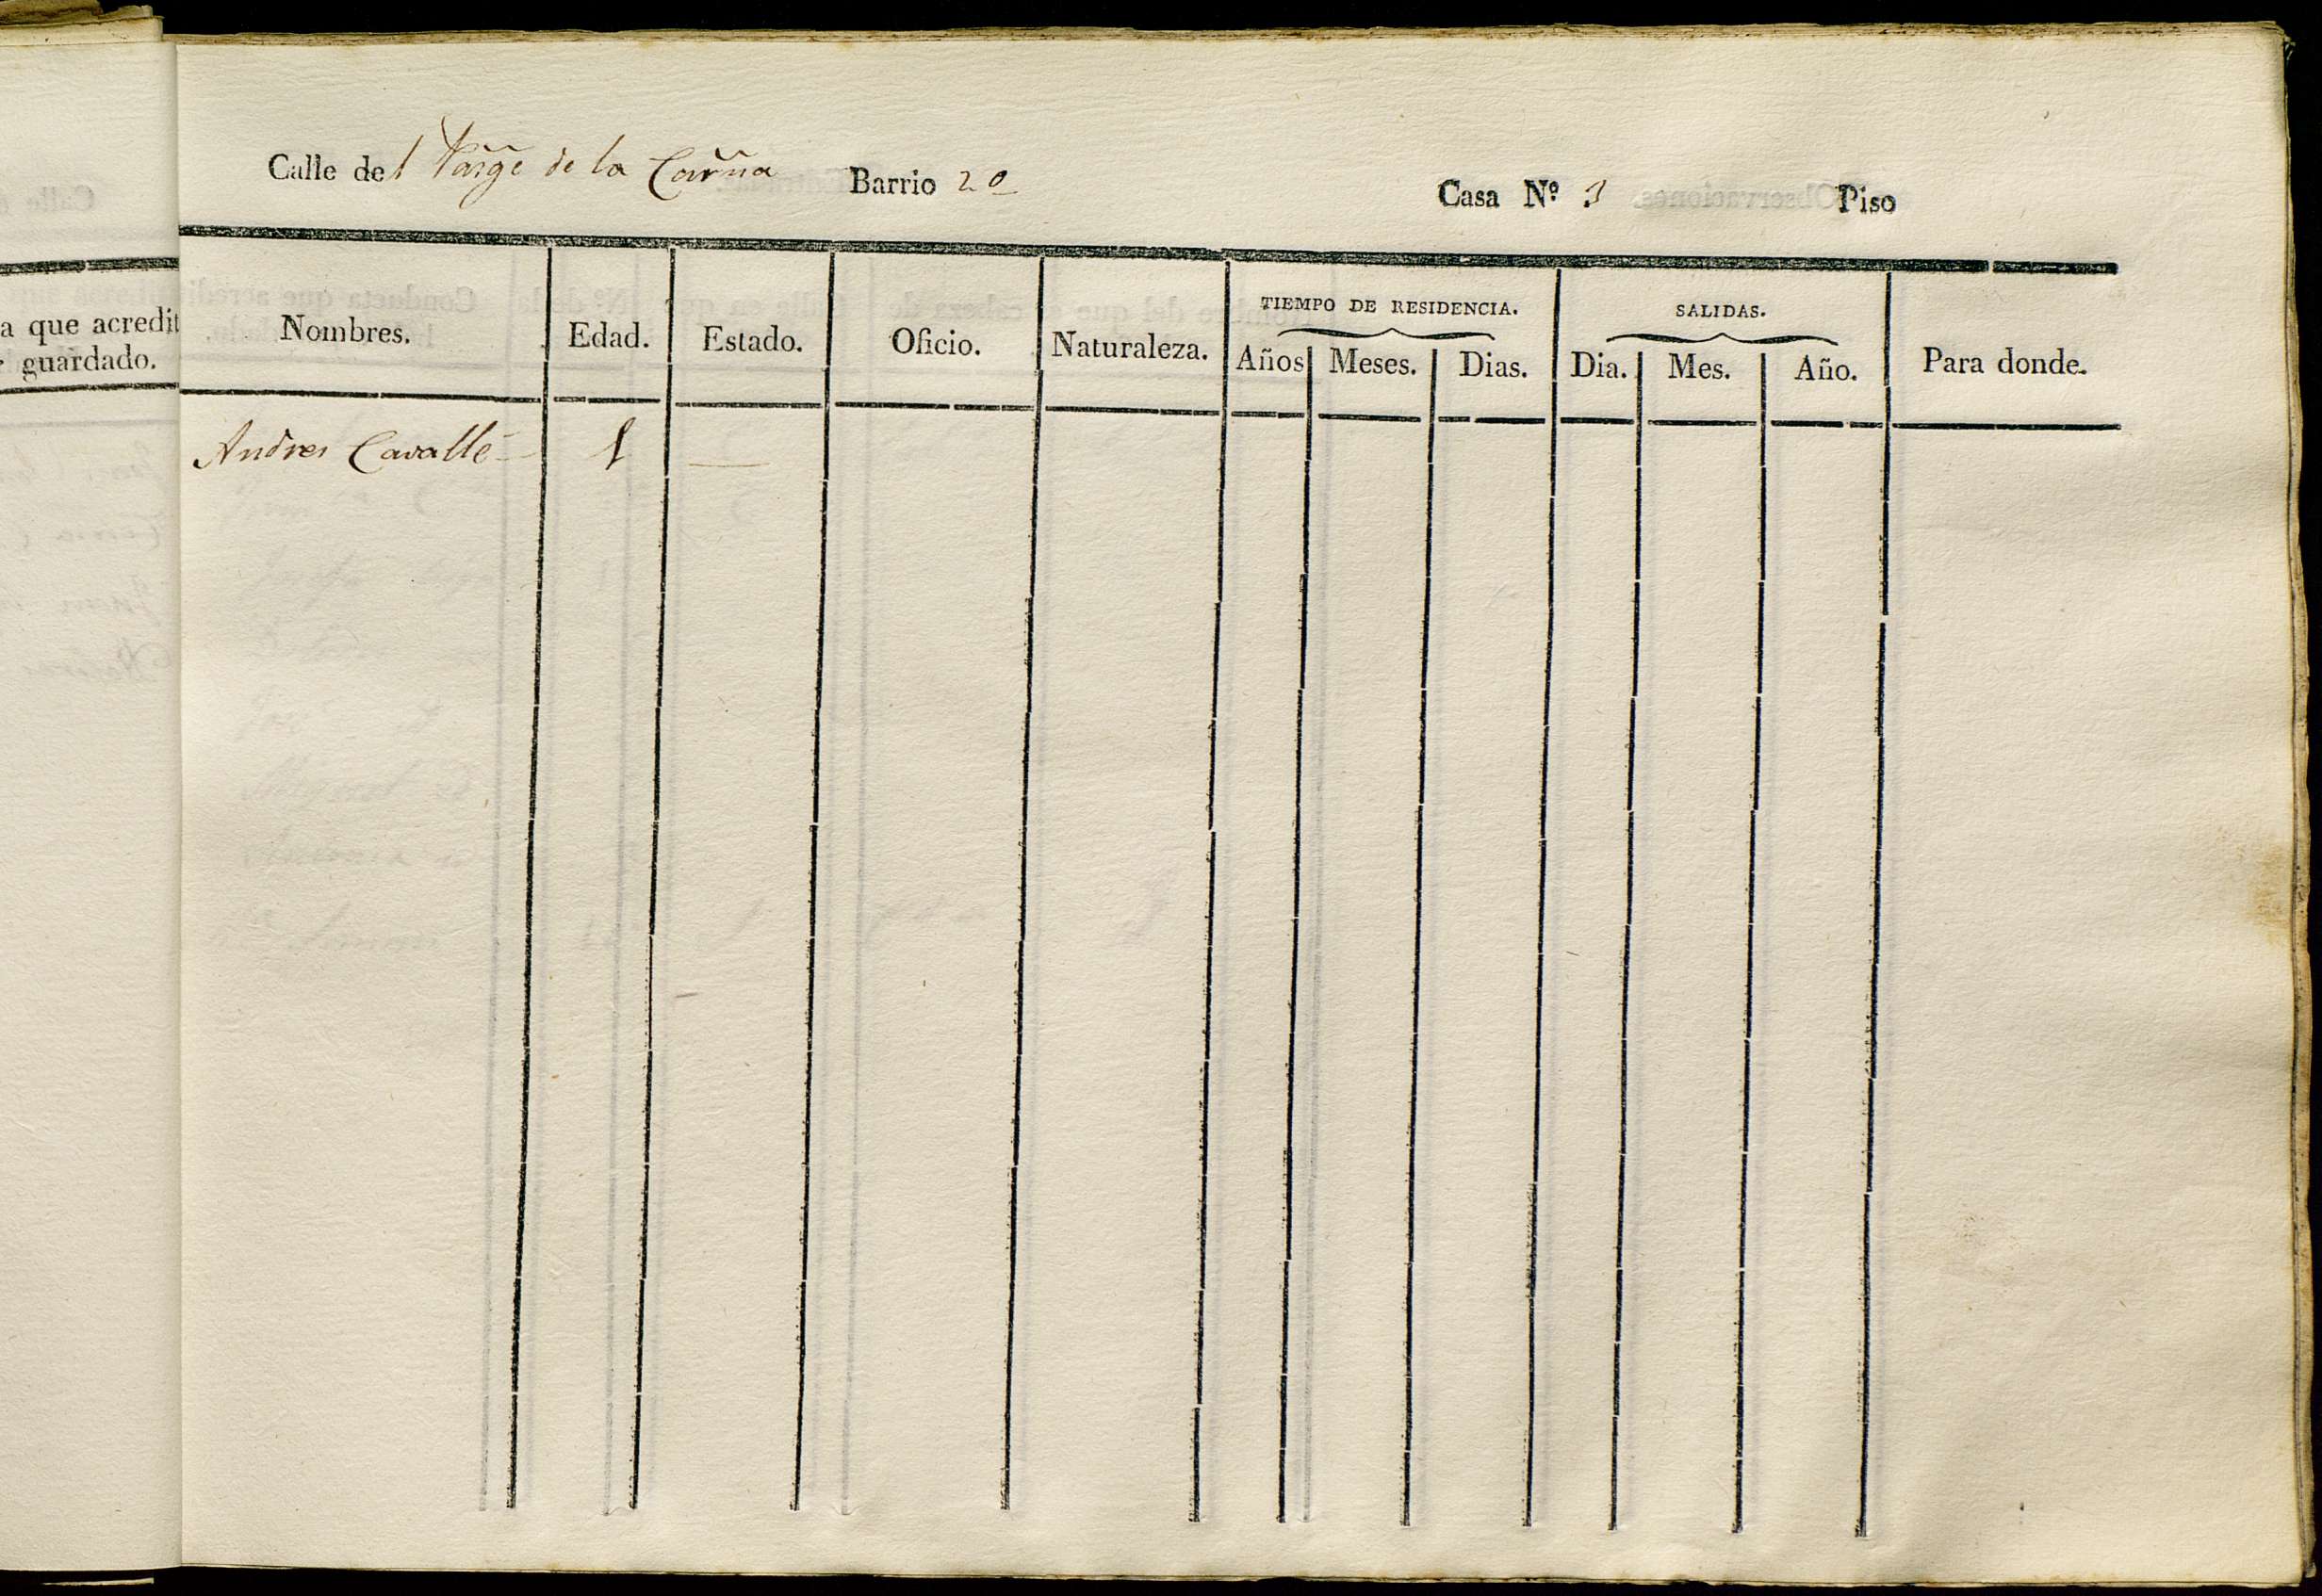 Calle del Barrio 2º Casa Nº 3 Piso
a que acredit
guardado.
Nombres. Edad. Estado. Oficio. Naturaleza. TIEMPO DE RESIDENCIA. SALIDAS. Para donde.
Años Meses. Dias. Dia. Mes. Año.
Andres Cavallé 1 —